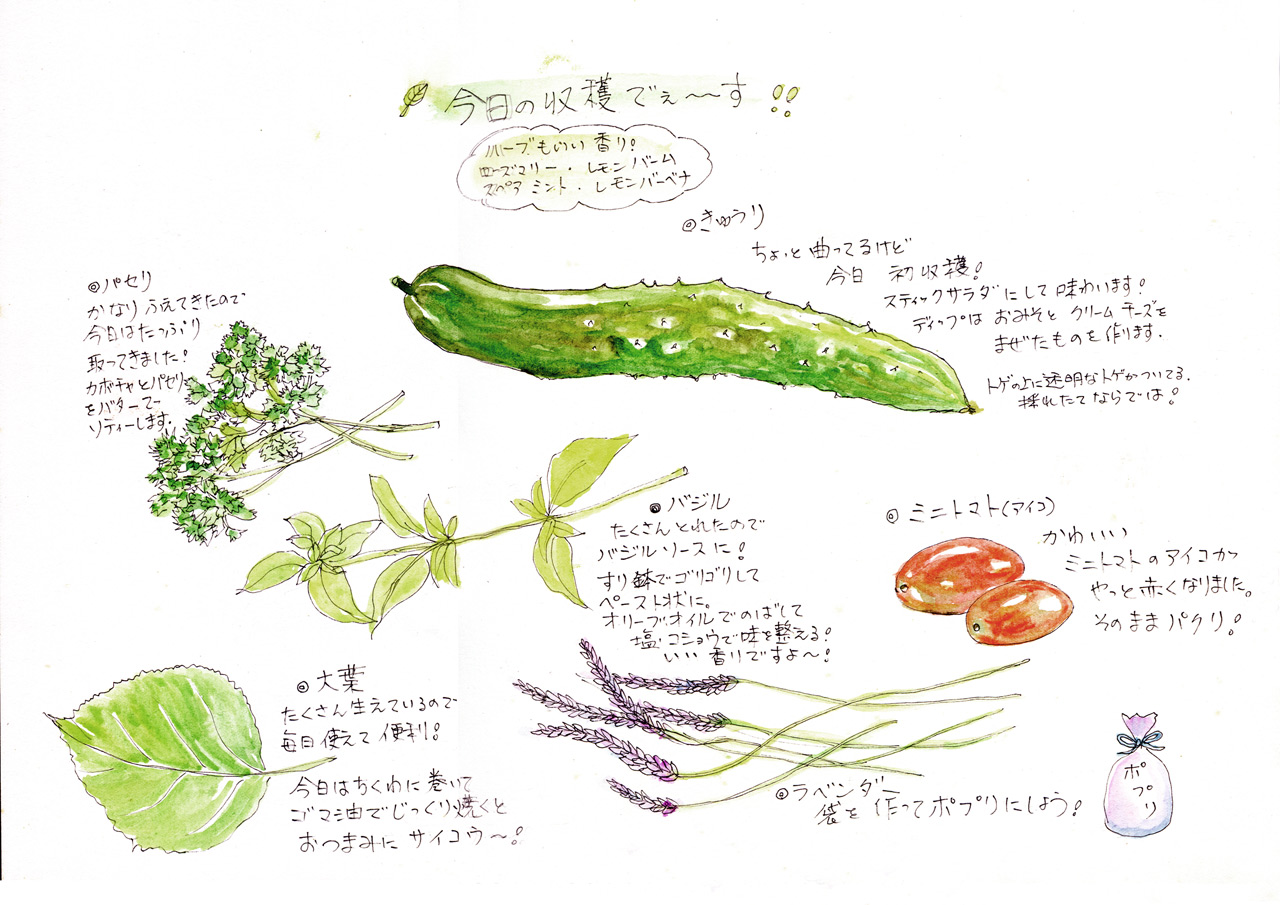 今日の収穫でぇ〜〜す!!
ハーブもいい香り!
ローズマリー・レモンバーム
スペアミント・レモンバーベナ
◎きゅうり
ちょっと曲ってるけど
今日 初収穫!
スティックサラダにして味わいます!
ディップは おみそと クリームチーズを
まぜたものを作ります.
トゲの上に透明なトゲがついてる.
採れたてならでは!
◎パセリ
かなりふえてきたので
今日はたっぷり
取ってきました!
カボチャとパセリ
をバターで
ソティーします.
◎バジル
たくさんとれたので
バジルソースに!
すり鉢でゴリゴリして
ペースト状に。
オリーブオイルでのばして
塩・コショウで味を整える!
いい香りですよ〜!
◎ミニトマト(アイコ)
かわいい
ミニトマトのアイコが
やっと赤くなりました。
そのままパクリ!
◎大葉
たくさん生えているので
毎日使えて便利!
今日はちくわに巻いて
ゴマ油でじっくり焼くと
おつまみにサイコウ〜!
◎ラベンダー
袋を作ってポプリにしよう!
ポプリ